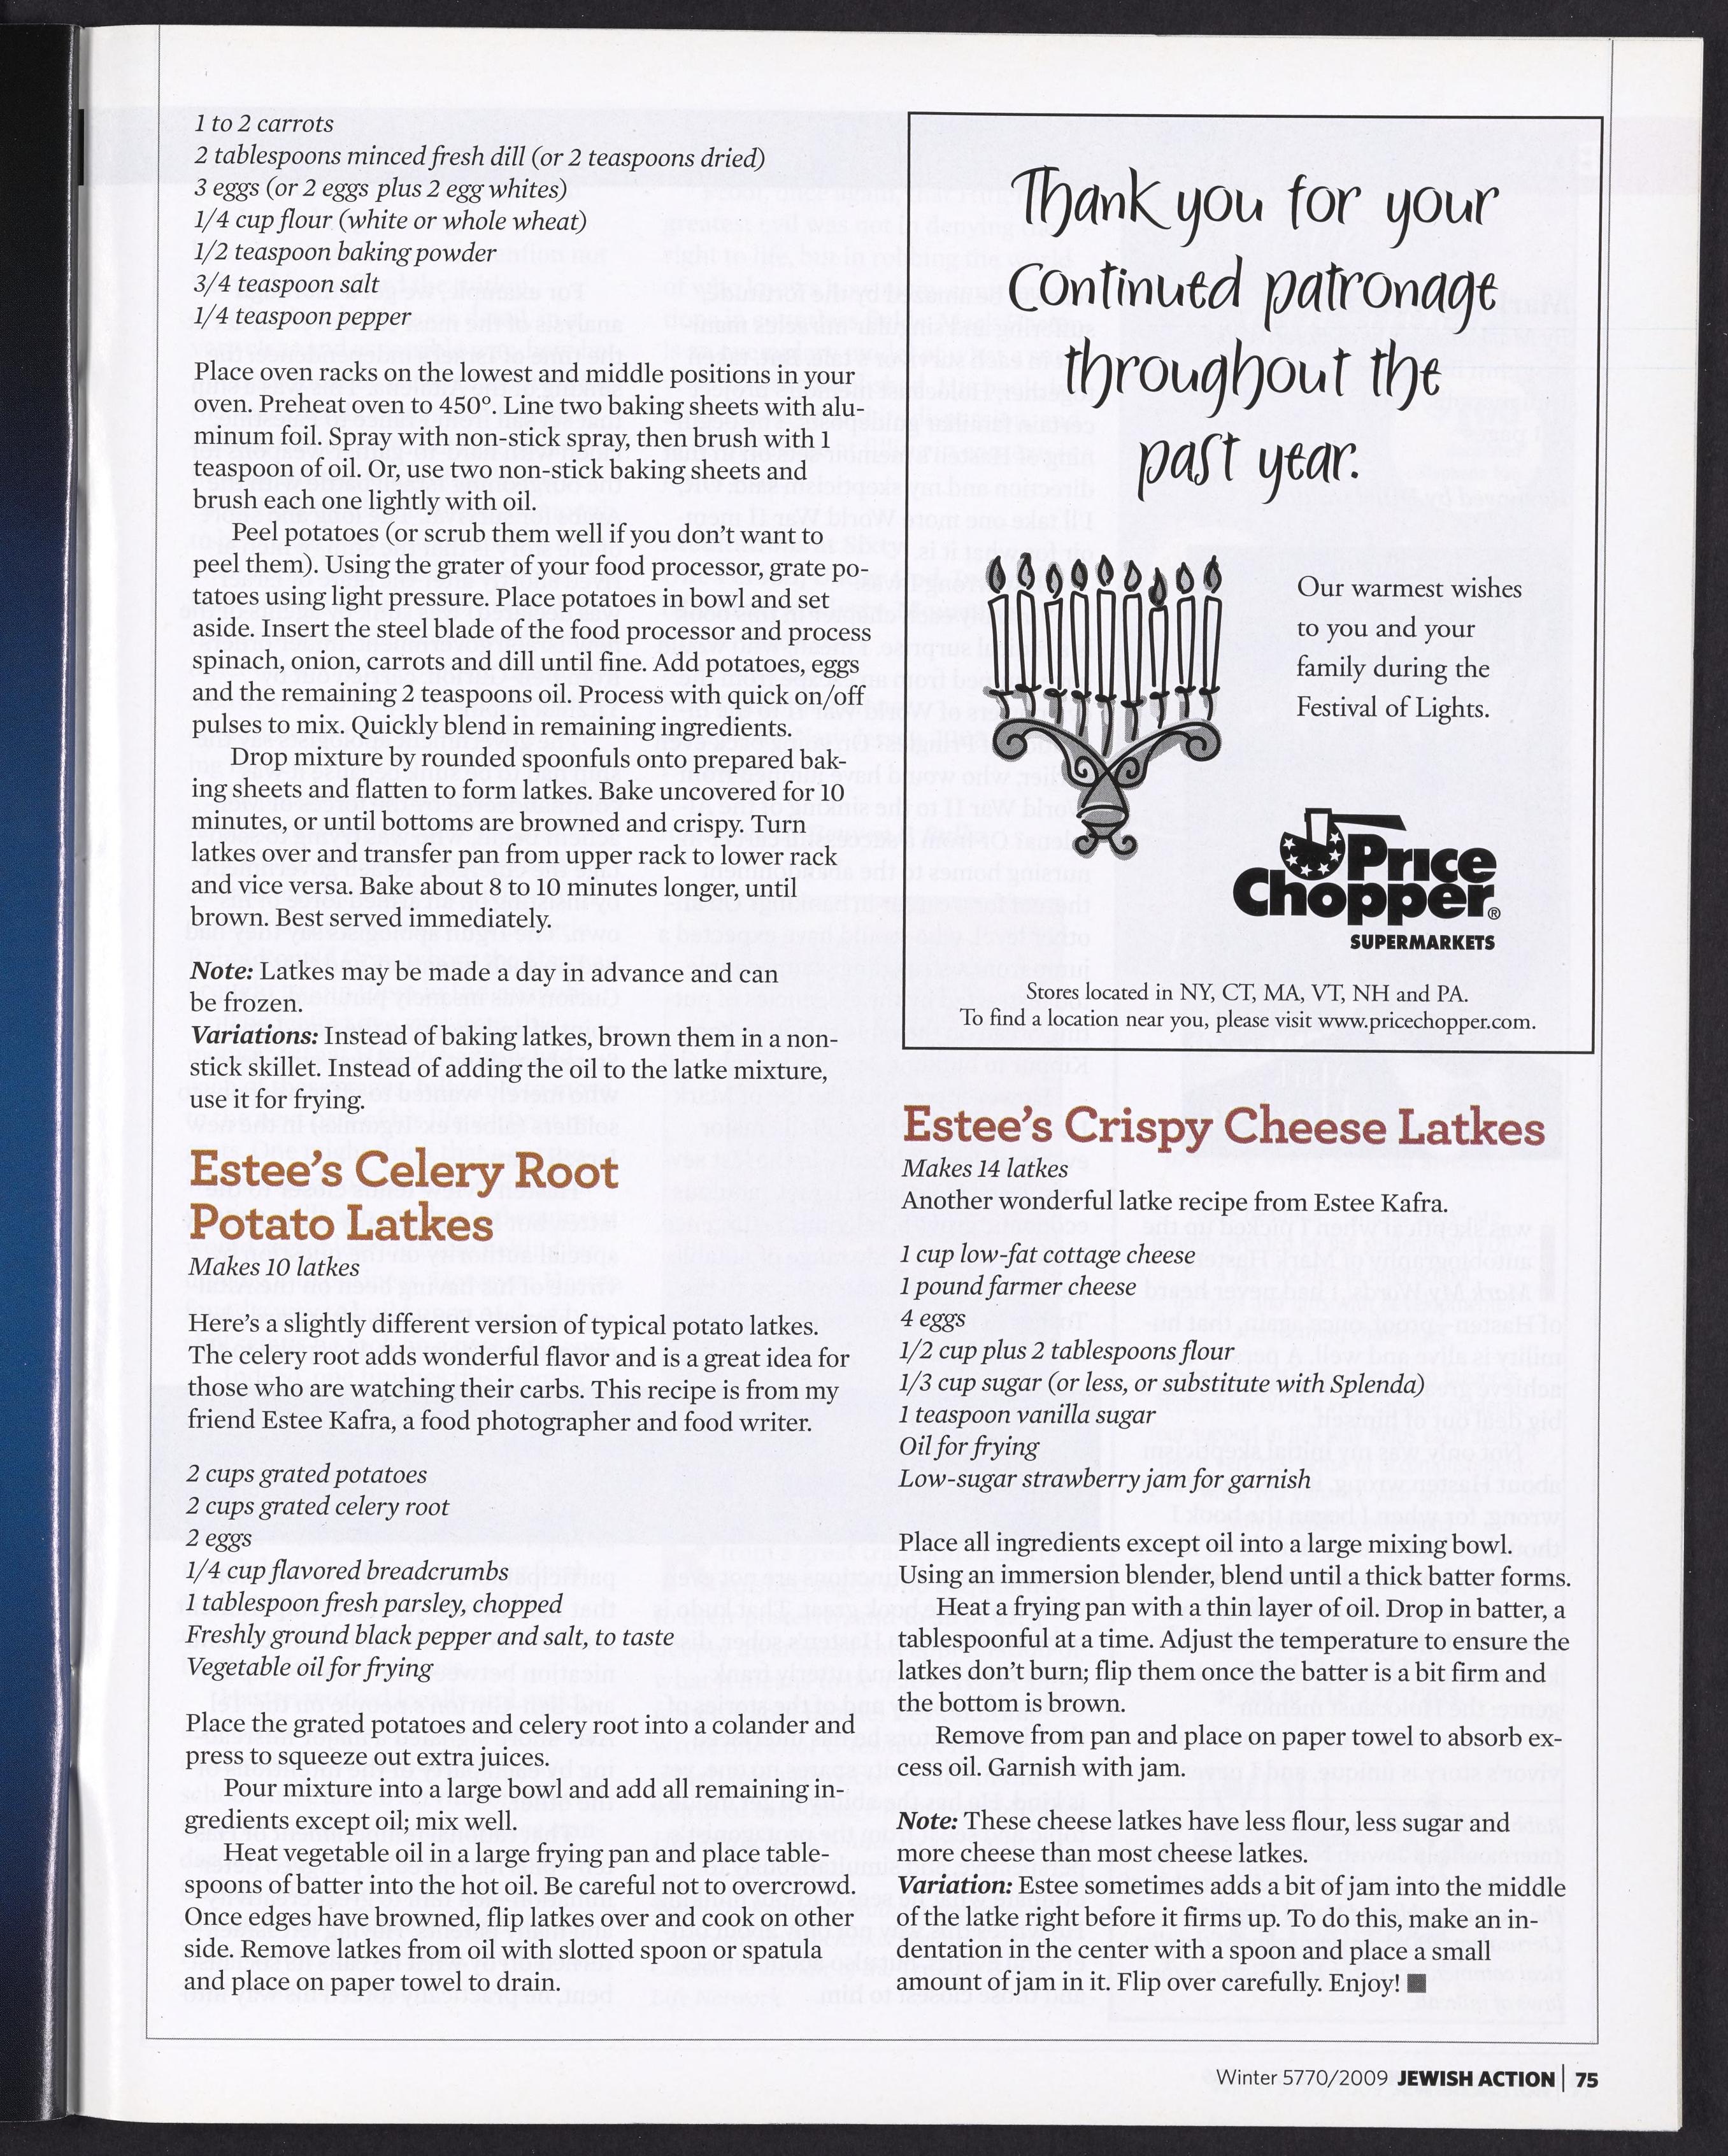 1 to 2 carrots
2 tablespoons minced fresh dill (or 2 teaspoons dried)
3 eggs (or 2 eggs plus 2 egg whites)
1/4 cup flour (white or whole wheat)
1/2 teaspoon baking powder
3/4 teaspoon salt
1/4 teaspoon pepper
Place oven racks on the lowest and middle positions in your
oven. Preheat oven to 450°. Line two baking sheets with alu-
minum foil. Spray with non-stick spray, then brush with 1
teaspoon of oil. Or, use two non-stick baking sheets and
brush each one lightly with oil.
Peel potatoes (or scrub them well if you don't want to
peel them). Using the grater of your food processor, grate po-
tatoes using light pressure. Place potatoes in bowl and set
aside. Insert the steel blade of the food processor and process
spinach, onion, carrots and dill until fine. Add potatoes, eggs
and the remaining 2 teaspoons oil. Process with quick on/off
pulses to mix. Quickly blend in remaining ingredients.
Drop mixture by rounded spoonfuls onto prepared bak-
ing sheets and flatten to form latkes. Bake uncovered for 10
minutes, or until bottoms are browned and crispy. Turn
latkes over and transfer pan from upper rack to lower rack
and vice versa. Bake about 8 to 10 minutes longer, until
brown. Best served immediately.
Note: Latkes may be made a day in advance and can
be frozen.
Variations: Instead of baking latkes, brown them in a non-
stick skillet. Instead of adding the oil to the latke mixture,
use it for frying.
Estee's Celery Root
Potato Latkes
Makes 10 latkes
Here's a slightly different version of typical potato latkes.
The celery root adds wonderful flavor and is a great idea for
those who are watching their carbs. This recipe is from my
friend Estee Kafra, a food photographer and food writer.
2 cups grated potatoes
2 cups grated celery root
2 eggs
1/4 cup flavored breadcrumbs
1 tablespoon fresh parsley, chopped
Freshly ground black pepper and salt, to taste
Vegetable oil for frying
Place the grated potatoes and celery root into a colander and
press to squeeze out extra juices.
Pour mixture into a large bowl and add all remaining in-
gredients except oil; mix well.
Heat vegetable oil in a large frying pan and place table-
spoons of batter into the hot oil. Be careful not to overcrowd.
Once edges have browned, flip latkes over and cook on other
side. Remove latkes from oil with slotted spoon or spatula
and place on paper towel to drain.
Thank you for your
continued patronage
throughout the
past year.
Our warmest wishes
to you and your
family during the
Festival of Lights.
Price
Chopper®
SUPERMARKETS
Stores located in NY, CT, MA, VT, NH and PA.
To find a location near you, please visit www.pricechopper.com.
Estee's Crispy Cheese Latkes
Makes 14 latkes
Another wonderful latke recipe from Estee Kafra.
1 cup low-fat cottage cheese
1 pound farmer cheese
4 eggs
1/2 cup plus 2 tablespoons flour
1/3 cup sugar (or less, or substitute with Splenda)
1 teaspoon vanilla sugar
Oil for frying
Low-sugar strawberry jam for garnish
Place all ingredients except oil into a large mixing bowl.
Using an immersion blender, blend until a thick batter forms.
Heat a frying pan with a thin layer of oil. Drop in batter, a
tablespoonful at a time. Adjust the temperature to ensure the
latkes don't burn; flip them once the batter is a bit firm and
the bottom is brown.
Remove from pan and place on paper towel to absorb ex-
cess oil. Garnish with jam.
Note: These cheese latkes have less flour, less sugar and
more cheese than most cheese latkes.
Variation: Estee sometimes adds a bit of jam into the middle
of the latke right before it firms up. To do this, make an in-
dentation in the center with a spoon and place a small
amount of jam in it. Flip over carefully. Enjoy! ■
Winter 5770/2009 JEWISH ACTION | 75